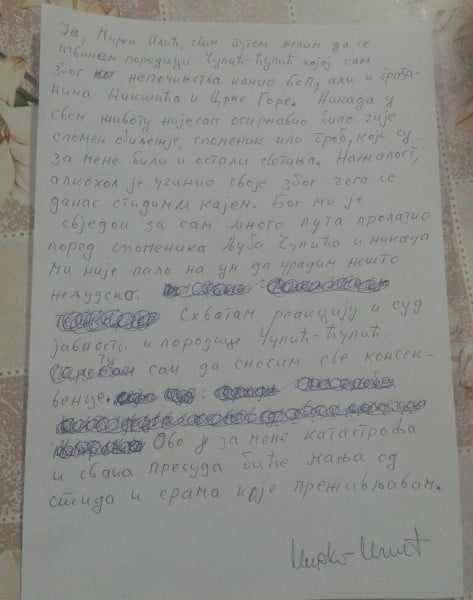 Ја, Мирко Илић, овим путем желим да се
извиним породици Чупић-Ћупић којој сам
због непочинства нанио бол, али и грађа-
нима Никшића и Црне Горе. Никада у
свом животу нијесам оскрнавио било чије
спомен обиљежје, споменик или гроб, који су
за мене били и остали светиња. Нажалост,
алкохол је учинио своје због чега се
данас стидим и кајем. Бог ми је
свједок да сам много пута пролазио
поред споменика Љуба Чупића и никада
ми није пало на ум да урадим нешто
нељудско.
Схватам реакцију и суд
јавности и породице Чупић-Ћупић.
сам да сносим све консек-
венце.
Ово је за мене катастрофа
и свака пресуда биће мања од
стида и срама које преживљавам.
Мирко Илић